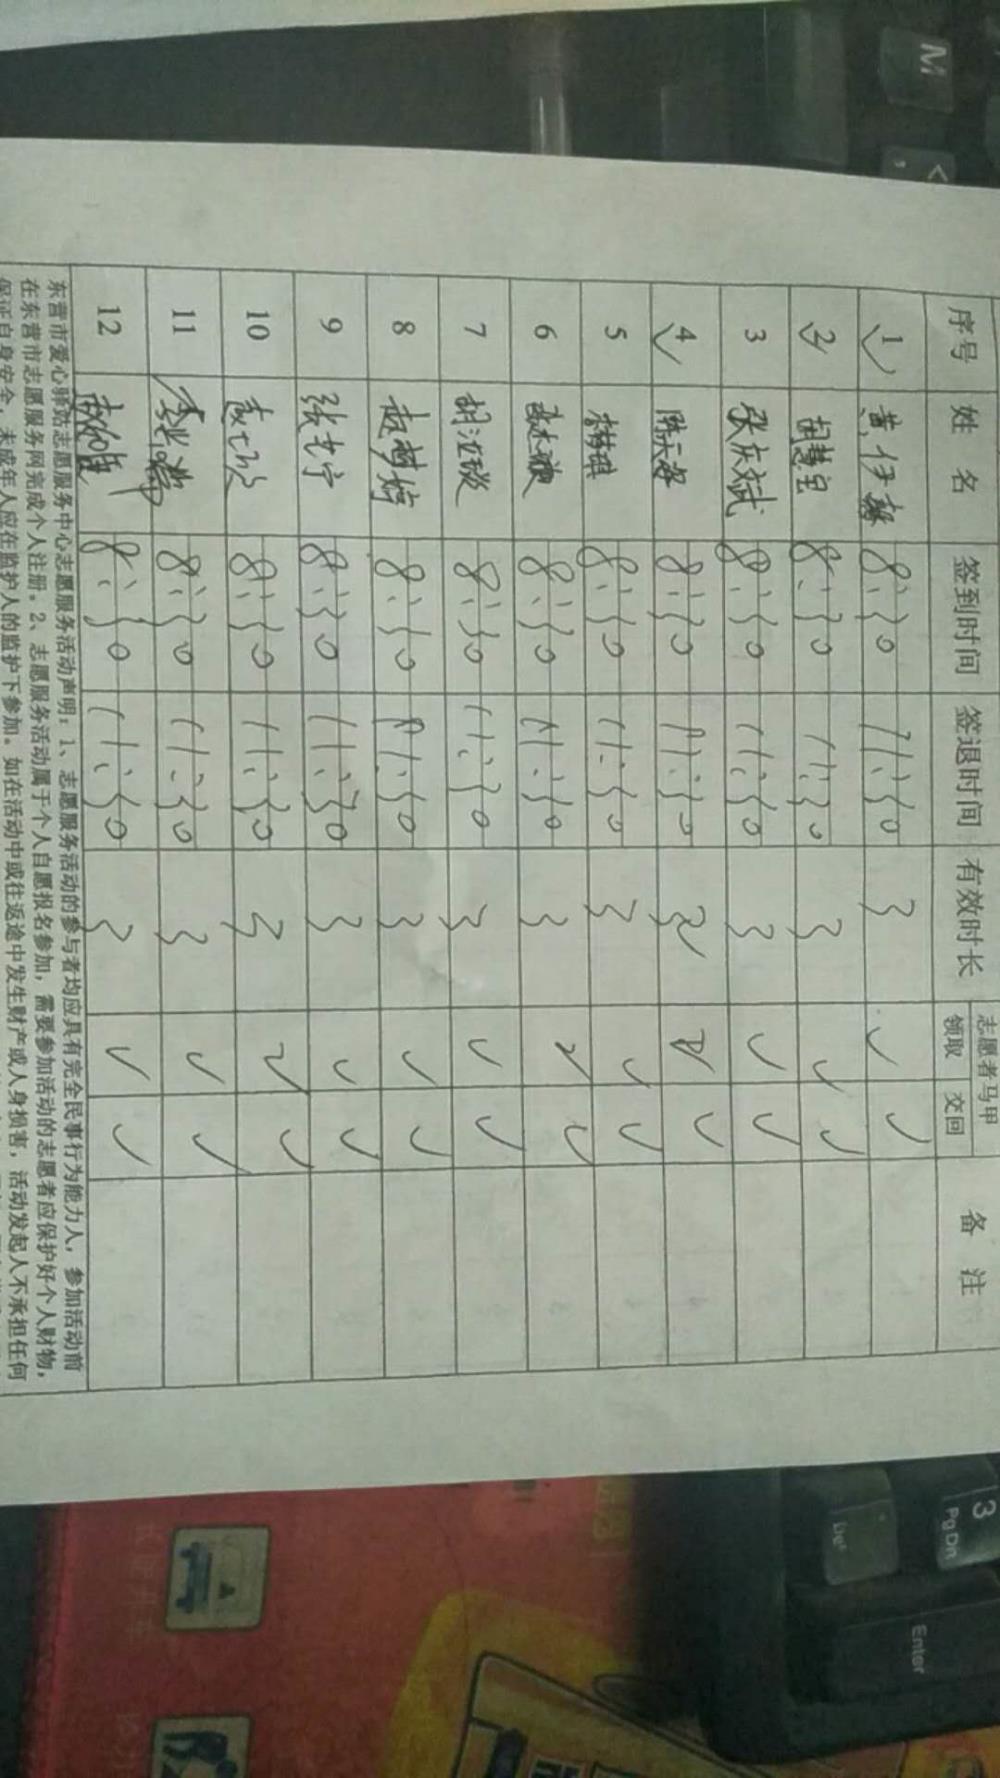 序号 姓 名 签到时间 签退时间 有效时长 志愿者马甲 领取 交回 备 注
1 ✓ 黄伊 8:30 11:30 3 ✓ ✓
2 ✓ 慧 8:30 11:30 3 ✓ ✓
3 张庆斌 8:30 11:30 3 ✓ ✓
4 ✓ 陈 8:30 11:30 3 ✓ ✓
5 8:30 11:30 3 ✓ ✓
6 8:30 11:30 3 ✓ ✓
7 胡 8:30 11:30 3 ✓ ✓
8 赵梦婷 8:30 11:30 3 ✓ ✓
9 张 宁 8:30 11:30 3 ✓ ✓
10 8:30 11:30 3 ✓ ✓
11 8:30 11:30 3 ✓ ✓
12 8:30 11:30 3 ✓ ✓
东营市爱心驿站志愿服务中心志愿服务活动声明：1、志愿服务活动的参与者均应具有完全民事行为能力人，参加活动前
在东营市志愿服务网完成个人注册。2、志愿服务活动属于个人自愿报名参加，需要参加活动的志愿者应保护好个人财物，
保证自身安全，未成年人应在监护人的监护下参加。如在活动中或往返途中发生财产或人身损害，活动发起人不承担任何
M
<
,
3
PgDn
.
Del
Enter